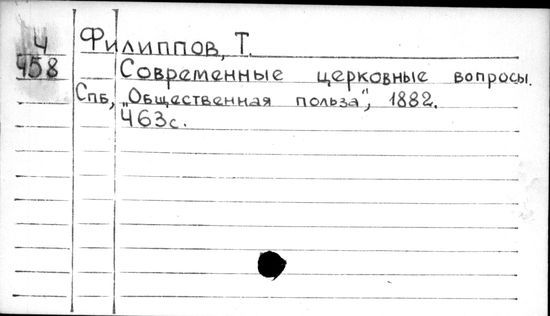 Ч Филиппов, Т.
458 Современные церковные вопросы.
Спб, „Общественная польза", 1882.
463с.